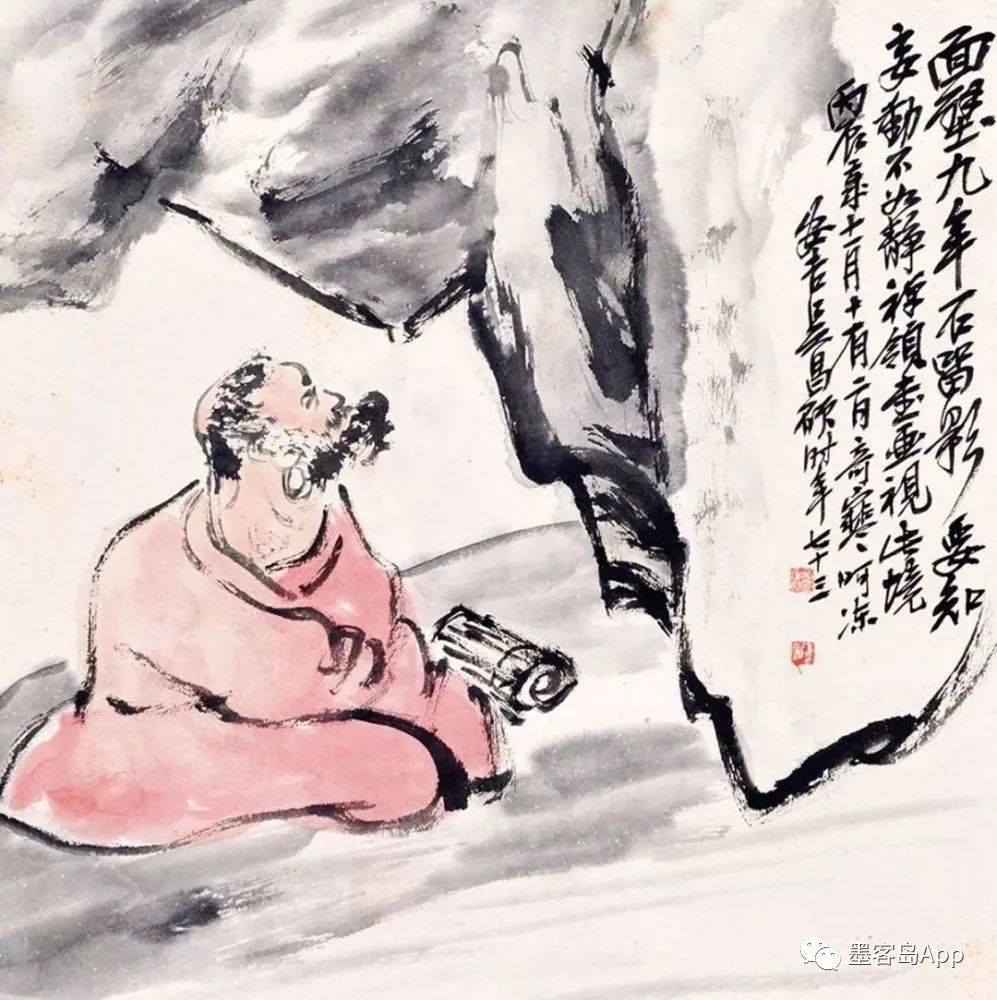 面壁九年石留影要知
妄動不如靜領画視此境
丙辰年十一月十有二日奇寒呵凍
安吉吳昌碩時年七十三
墨客岛App